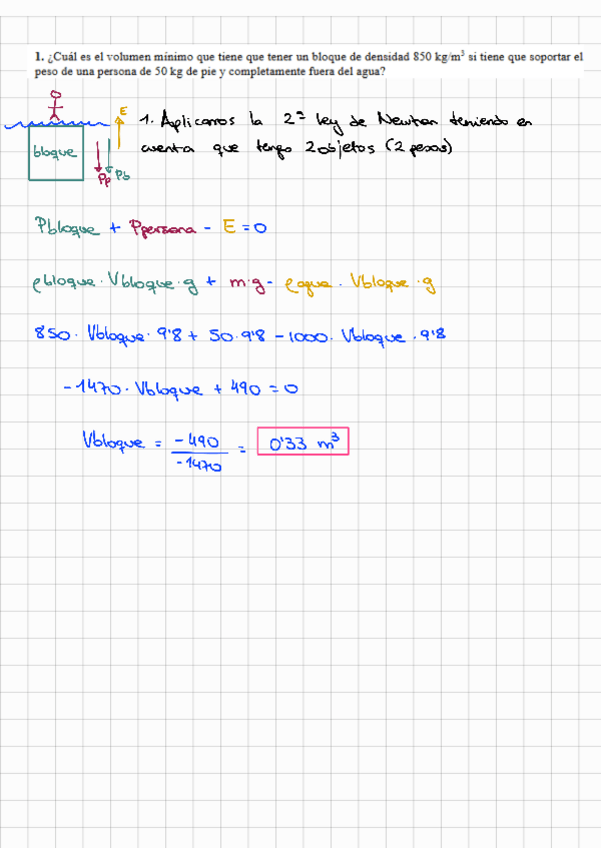 1. ¿Cuál es el volumen mínimo que tiene que tener un bloque de densidad 850 kg/m³ si tiene que soportar el
peso de una persona de 50 kg de pie y completamente fuera del agua?
E
1. Aplicamos la 2ª ley de Newton teniendo en
bloque
cuenta que tengo 2 objetos (2 pesos)
Pp Pb
Pbloque + Ppersona - E = 0
ρbloque · Vbloque · g + m·g - ρagua · Vbloque · g
850 · Vbloque · 9'8 + 50·9'8 - 1000 · Vbloque · 9'8
-1470 · Vbloque + 490 = 0
Vbloque = -490 / -1470 = 0'33 m³